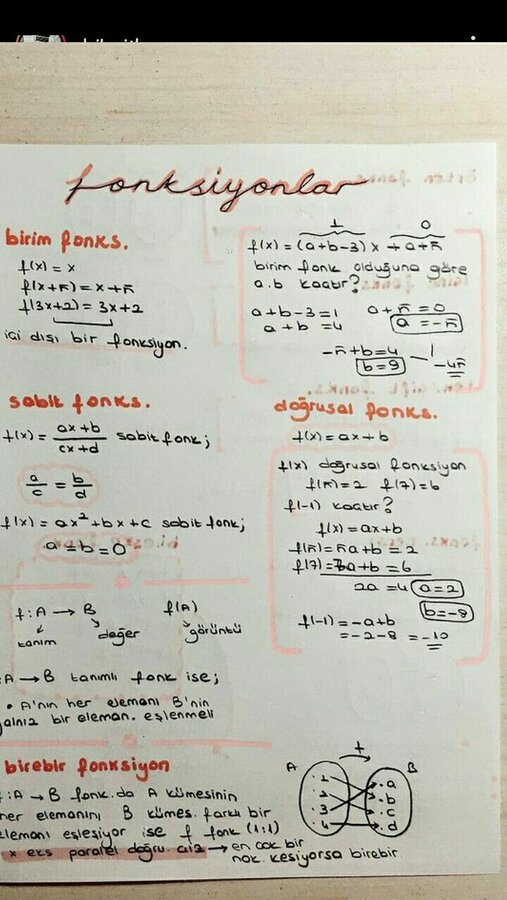 fonksiyonlar
birim fonks.
f(x) = x
f(x+5) = x+5
f(3x+2) = 3x+2
içi dışı bir fonksiyon.
1 0
f(x) = (a+b-3) x + a+5
birim fonk olduğuna göre
a.b kaçtır?
a+b-3 = 1 a+5 = 0
a+b = 4 a = -5
-5+b = 4
b = 9 -45
sabit fonks.
f(x) = ax+b / cx+d sabit fonk;
a/c = b/d
f(x) = ax² + bx + c sabit fonk;
a = b = 0
f: A → B f(A)
tanım değer görüntü
: A → B tanımlı fonk ise;
• A'nın her elemanı B'nin
yalnız bir eleman. eşlenmeli
doğrusal fonks.
f(x) = ax+b
f(x) doğrusal fonksiyon
f(5) = 2 f(7) = 6
f(-1) kaçtır?
f(x) = ax+b
f(5) = 5a+b = 2
f(7) = 7a+b = 6
2a = 4 a = 2
b = -8
f(-1) = -a+b
= -2-8 = -10
birebir fonksiyon
f: A → B fonk. da A kümesinin
her elemanını B kümes. farklı bir
elemanı eşleşiyor ise f fonk (1:1)
x eks paralel doğru çiz → en çok bir
nok. kesiyorsa birebir
f
A B
1 a
2 b
3 c
4 d